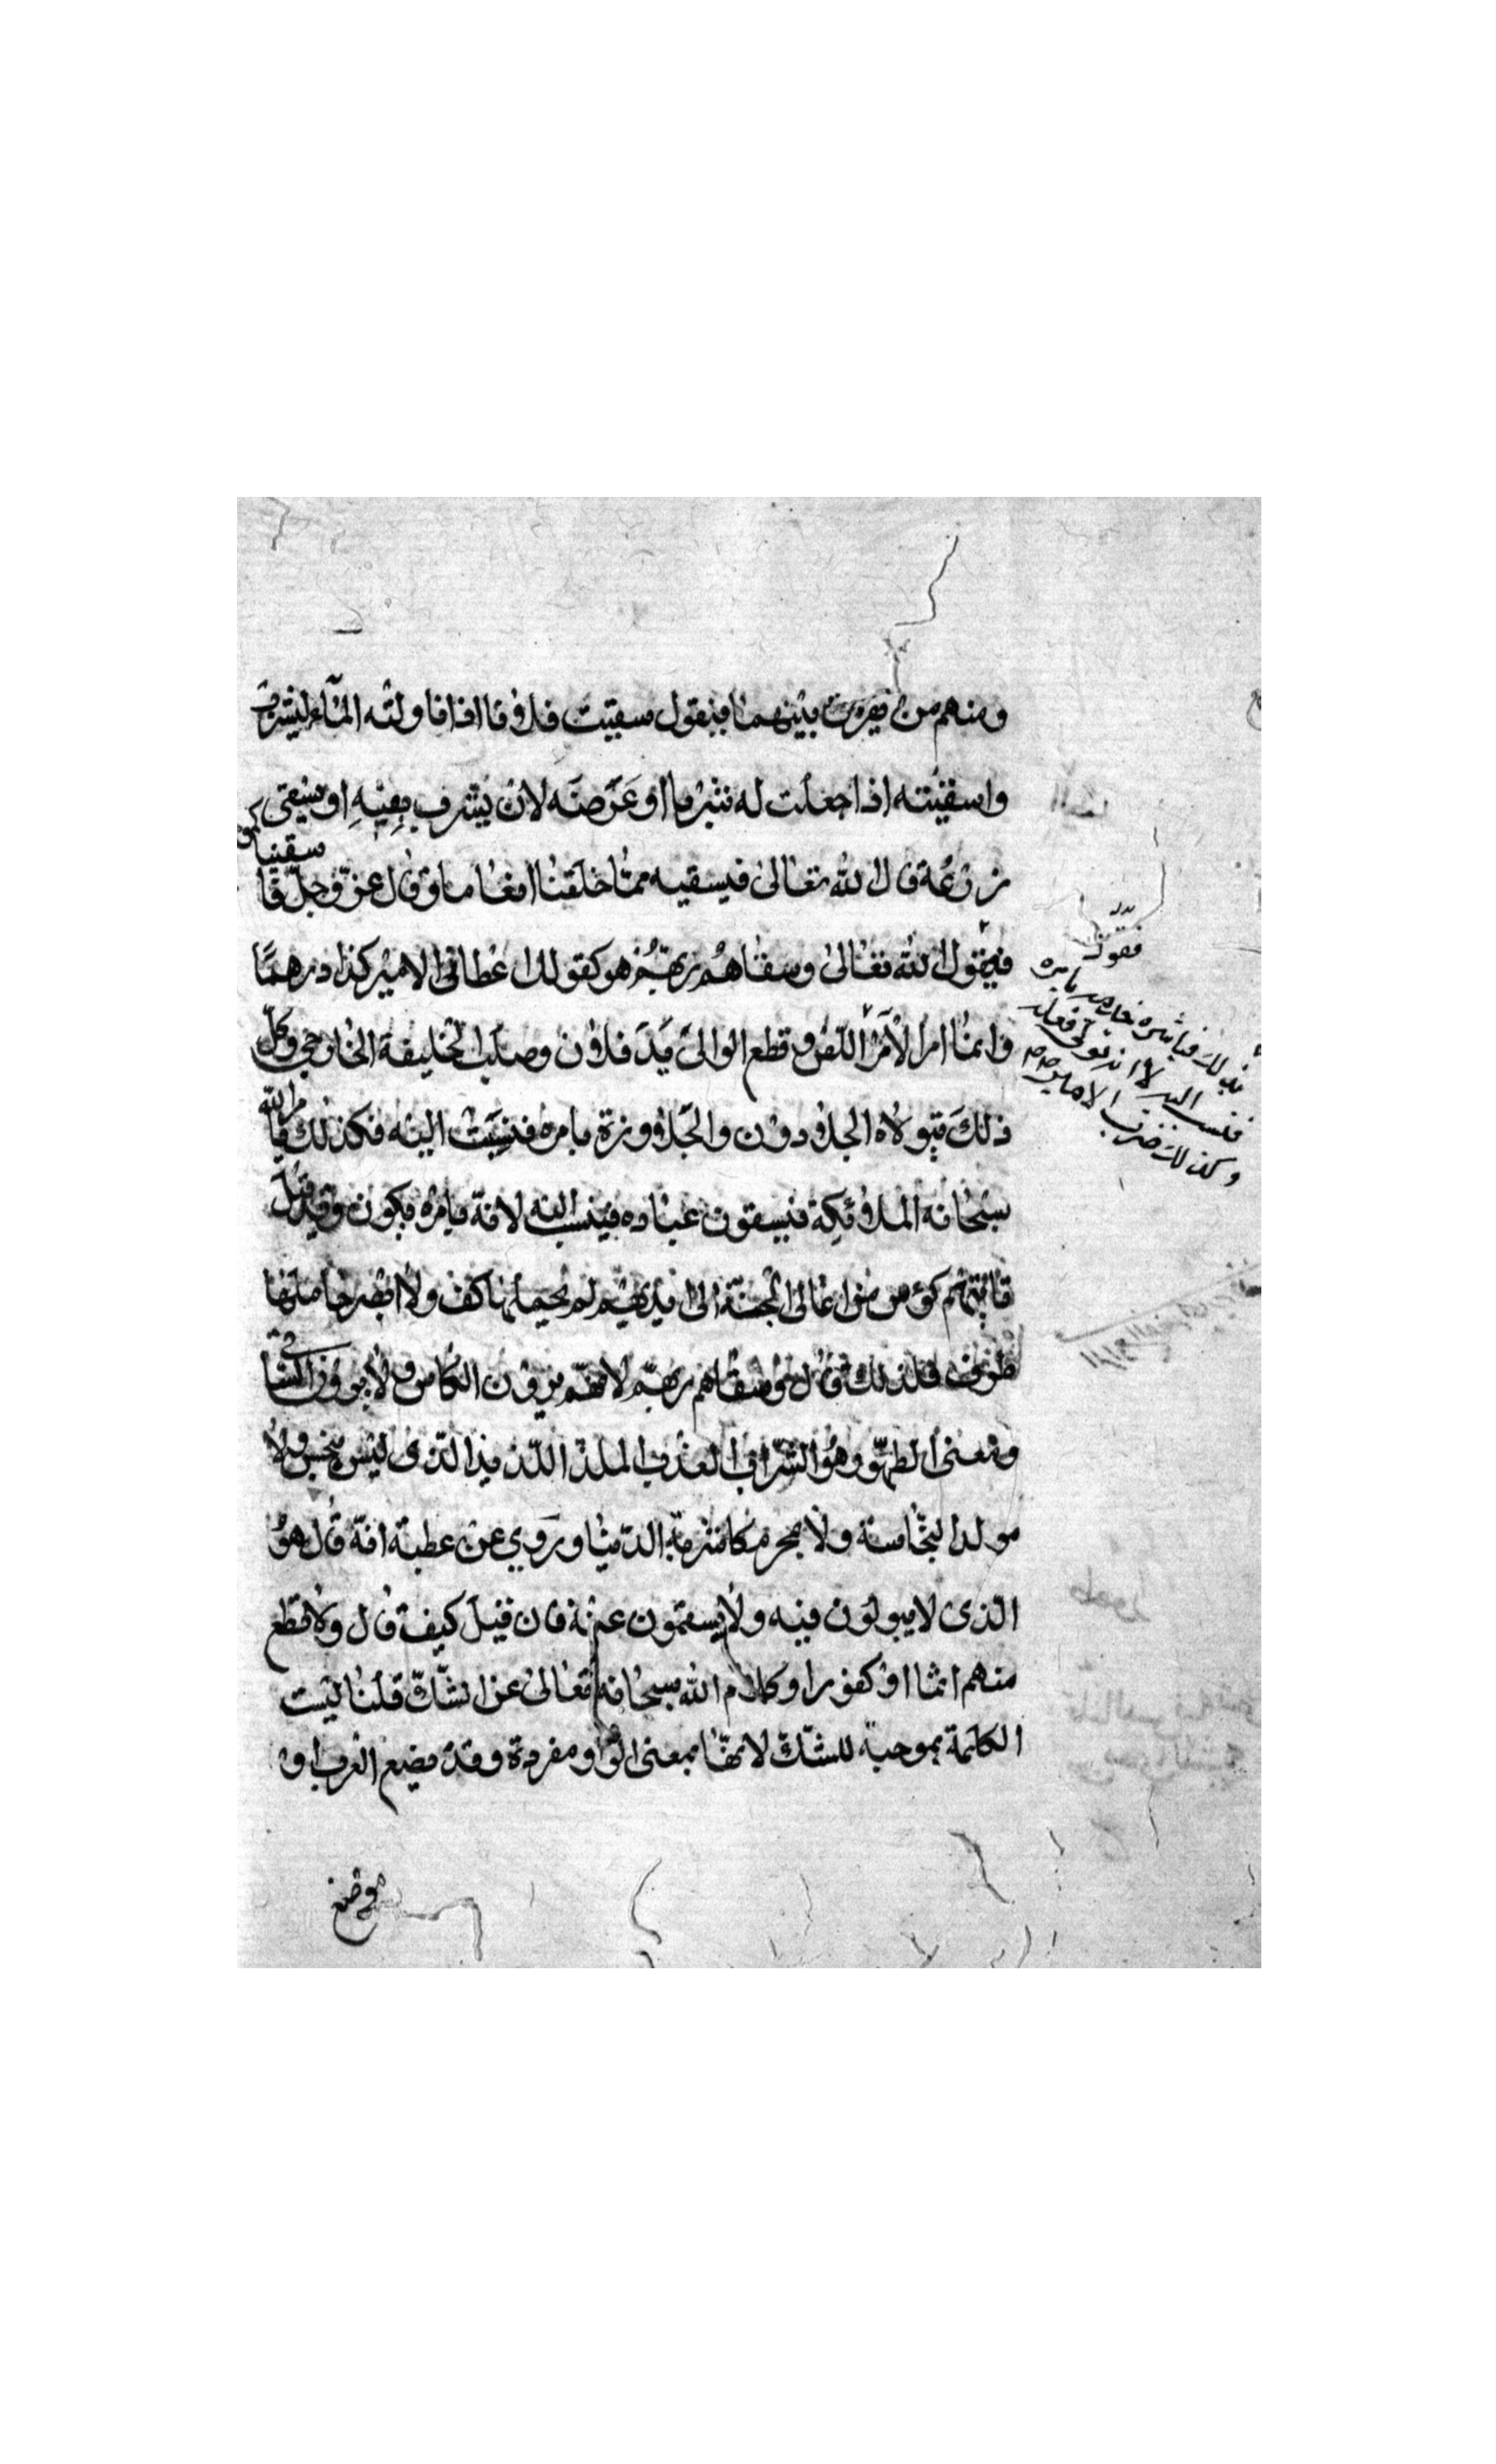 ومنهم من يفرق بينهما فيقول سقيت فلانا اذا ناولته المآء ليشرب
واسقيته اذا جعلت له شربا او عرضته لان يشرب بفيه او يسقى
زرعه قال الله تعالى فيسقيه مما خلقنا انعاما وقال عز وجل
سقيناكم
فيقول الله تعالى وسقاهم ربهم هو كقولك اعطانى الامير كذا درهما
وانما امر الآمر اللص و قطع الوالى يد فلان وصلب الخليفة الخارجى وكل
ذلك يتولاه الجلادون والجلاوزة بامره فنسبت اليه فكذلك يامر الله
سبحانه الملائكة فيسقون عباده فينسب اليه لانه بامره يكون وقد قيل
تاتيهم كؤس من اعالى الجنة الى ايديهم لم يحملها كف ولا ابصر حاملها
طرف فلذلك قال وسقاهم ربهم لانهم يرون الكاس ولا يرون الساقى
ومعنى الطهور هو الشراب العذب الملذ اللذيذ الذى ليس بنجس ولا
مولد لنجاسة ولا بمحرم كاشربة الدنيا وروي عن عطية انه قال هو
الذى لا يبولون فيه ولا يستمون عنه فان قيل كيف قال ولا تطع
منهم اثما او كفورا وكلام الله سبحانه تعالى عن الشك قلنا ليست
الكلمة بموجبة للشك لانها بمعنى الواو مفردة وقد يضع العرب او
موضع
فتقول
وكذلك ضرب الامير